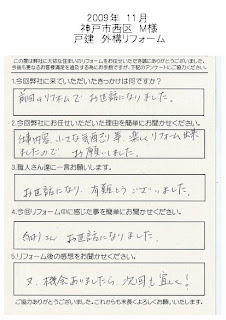 2009年 11月
神戸市西区 M様
戸建 外構リフォーム
この度は弊社に大切な住まいのリフォームをお任せいただき誠にありがとうございました。
1.今回弊社に来ていただいたきっかけは何ですか？
前回のリフォームで お世話になりました。
2.今回弊社にお任せいただいた理由を簡単にお聞かせください。
仕事内容、
ましたので お願いしました。
3.職人さん達に一言お願いします。
お世話になり、有難とうございました。
4.今回リフォーム中に感じた事を簡単にお聞かせください。
お世話になりました。
5.リフォーム後の感想をお聞かせください。
又、機会ありましたら、次回も宜しく！
ご協力ありがとうございました。これからも末長くよろしくお願いいたします。